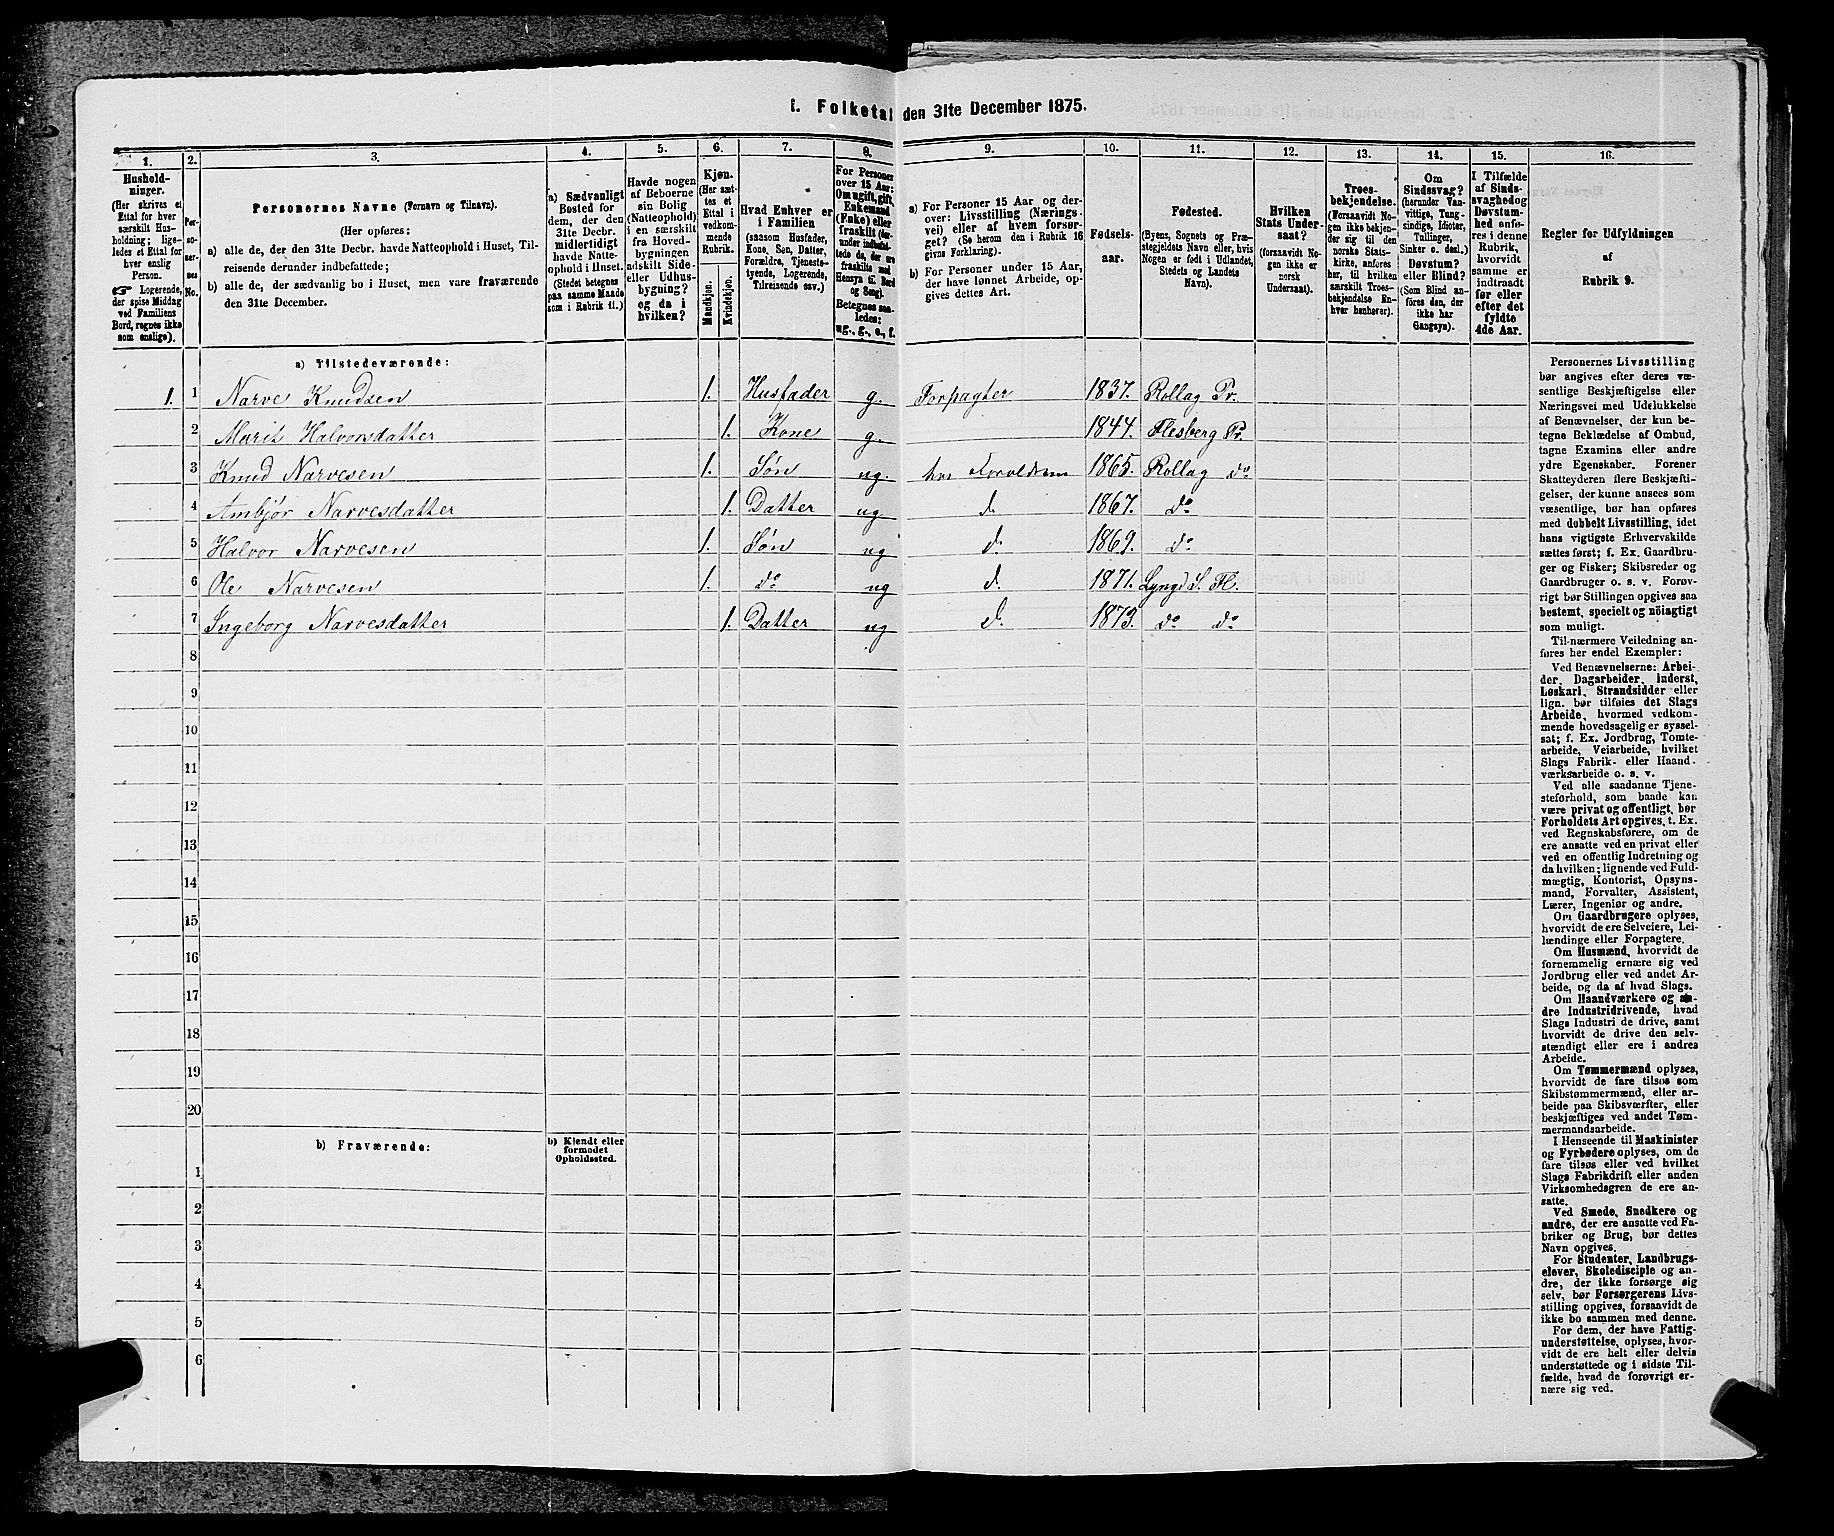 1. Folketal den 31te December 1875.
1. 2. 3. 4. 5. 6. 7. 8. 9. 10. 11. 12. 13. 14. 15. 16.
Hushold-
ninger.
(Her skrives et
Ettal for hver
særskilt Hus-
holdning; lige-
ledes et Ettal for
hver enslig
Person.
☞ Logerende,
der spise Middag
ved Familiens
Bord, regnes ikke
som enslige).
Per-
so-
ner-
nes
No.
Personernes Navne (Fornavn og Tilnavn).
(Her opføres:
a) alle de, der den 31te Decbr. havde Natteophold i Huset, Til-
reisende derunder indbefattede;
b) alle de, der sædvanlig bo i Huset, men vare fraværende
den 31te December.
a) Sædvanligt
Bosted for
dem, der den
31te Decbr.
midlertidigt
havde Natte-
ophold i Huset.
(Stedet betegnes
paa samme Maade
som i Rubrik 11.)
Havde nogen
af Beboerne
sin Bolig
(Natteophold)
i en særskilt
fra Hoved-
bygningen
adskilt Side-
eller Udhus-
bygning?
og da i
hvilken?
Kjøn.
(Her sæt-
tes et
Ettal i
vedkom-
mende
Rubrik.
Mandkjøn.
Kvindekjøn.
Hvad Enhver er
i Familien
(saasom Husfader,
Kone, Søn, Datter,
Forældre, Tjeneste-
tyende, Logerende,
Tilreisende osv.)
For Personer
over 15 Aar:
Om ugift, gift,
Enkemand
(Enke) eller
fraskilt (der-
under indbefat-
tede de, der ere
fraskilte med
Hensyn til Bord
og Seng).
Betegnes saa-
ledes:
ug., g., e., f.
a) For Personer 15 Aar og der-
over: Livsstilling (Nærings-
vei) eller af hvem forsør-
get? (Se herom den i Rubrik 16
givne Forklaring).
b) For Personer under 15 Aar,
der have lønnet Arbeide, op-
gives dettes Art.
Fødsels-
aar.
Fødested.
(Byens, Sognets og Præ-
stegjeldets Navn eller, hvis
Nogen er født i Udlandet,
Stedets og Landets
Navn).
Hvilken
Stats Under-
saat?
(forsaavidt No-
gen ikke er
norsk
Undersaat).
Troes-
bekjendelse.
(Forsaavidt No-
gen ikke bekjen-
der sig til den
norske Stats-
kirke, anføres
her, til hvilken
særskilt Troes-
bekjendelse En-
hver henhører).
Om
Sindssvag?
(herunder Van-
vittige, Tung-
sindige, Idioter,
Tullinger,
Sinker o. desl.)
Døvstum?
eller Blind?
(Som Blind an-
føres den, der
ikke har
Gangsyn).
I Tilfælde
af Sinds-
svaghed og
Døvstum-
hed anfø-
res i denne
Rubrik,
hvorvidt
samme er
indtraadt
før eller
efter det
fyldte
4de Aar.
Regler for Udfyldningen
af
Rubrik 9.
a) Tilstedeværende:
1. 1 Narve Knudsen 1. Husfader g. Forpagter 1837. Rollag Pr.
2 Marit Halvorsdatter 1. Kone g. 1844. Flesberg Pr.
3 Knud Narvesen 1. Søn ug. hos Foreldrene 1865. Rollag do
4 Ambjør Narvesdatter 1. Datter ug d. 1867. do
5 Halvor Narvesen 1. Søn ug d. 1869. do
6 Ole Narvesen 1. do ug d. 1871. Lyngd S. Fl.
7 Ingeborg Narvesdatter 1. Datter ug d. 1873. do do
8
9
10
11
12
13
14
15
16
17
18
19
20
b) Fraværende:
b) Kjendt eller
formodet
Opholdssted.
1
2
3
4
5
6
Personernes Livsstilling
bør angives efter deres væ-
sentlige Beskjæftigelse eller
Næringsvei med Udelukkelse
af Benævnelser, der kun be-
tegne Beklædelse af Ombud,
tagne Examina eller andre
ydre Egenskaber. Forener
Skatteyderen flere Beskjæfti-
gelser, der kunne ansees som
væsentlige, bør han opføres
med dobbelt Livsstilling, idet
hans vigtigste Erhvervskilde
sættes først; f. Ex. Gaardbru-
ger og Fisker; Skibsreder og
Gaardbruger o. s. v. Forøv-
rigt bør Stillingen opgives saa
bestemt, specielt og nøiagtigt
som muligt.
Til nærmere Veiledning an-
føres her endel Exempler:
Ved Benævnelserne: Arbei-
der, Dagarbeider, Inderst,
Løskarl, Strandsidder eller
lign. bør tilføies det Slags
Arbeide, hvormed vedkom-
mende hovedsagelig er syssel-
sat; f. Ex. Jordbrug, Tomte-
arbeide, Veiarbeide, hvilket
Slags Fabrik- eller Haand-
værksarbeide o. s. v.
Ved alle saadanne Tjene-
steforhold, som baade kan
være privat og offentligt, bør
Forholdets Art opgives, t. Ex.
ved Regnskabsførere, om de
ere ansatte ved en privat eller
ved en offentlig Indretning og
da hvilken; lignende ved Fuld-
mægtig, Kontorist, Opsyns-
mand, Forvalter, Assistent,
Lærer, Ingeniør og andre.
Om Gaardbrugere oplyses,
hvorvidt de ere Selveiere, Lei-
lændinge eller Forpagtere.
Om Husmænd, hvorvidt de
fornemmelig ernære sig ved
Jordbrug eller ved andet Ar-
beide, og da af hvad Slags.
Om Haandværkere og an-
dre Industridrivende, hvad
Slags Industri de drive, samt
hvorvidt de drive den selv-
stændigt eller ere i andres
Arbeide.
Om Tømmermænd oplyses,
hvorvidt de fare tilsøs som
Skibstømmermænd, eller ar-
beide paa Skibsværfter, eller
beskjæftiges ved andet Tøm-
mermandsarbeide.
I Henseende til Maskinister
og Fyrbødere oplyses, om de
fare tilsøs eller ved hvilket
Slags Fabrikdrift eller anden
Virksomhedsgren de ere an-
satte.
Ved Smede, Snedkere og
andre, der ere ansatte ved Fa-
briker og Brug, bør dettes
Navn opgives.
For Studenter, Landbrugs-
elever, Skoledisciple og an-
dre, der ikke forsørge sig
selv, bør Forsørgerens Livs-
stilling opgives, forsaavidt de
ikke bo sammen med denne.
For dem, der have Fattig-
understøttelse, oplyses, hvor-
vidt de ere helt eller delvis
understøttede og i sidste Til-
fælde, hvad de forøvrigt er-
nære sig ved.